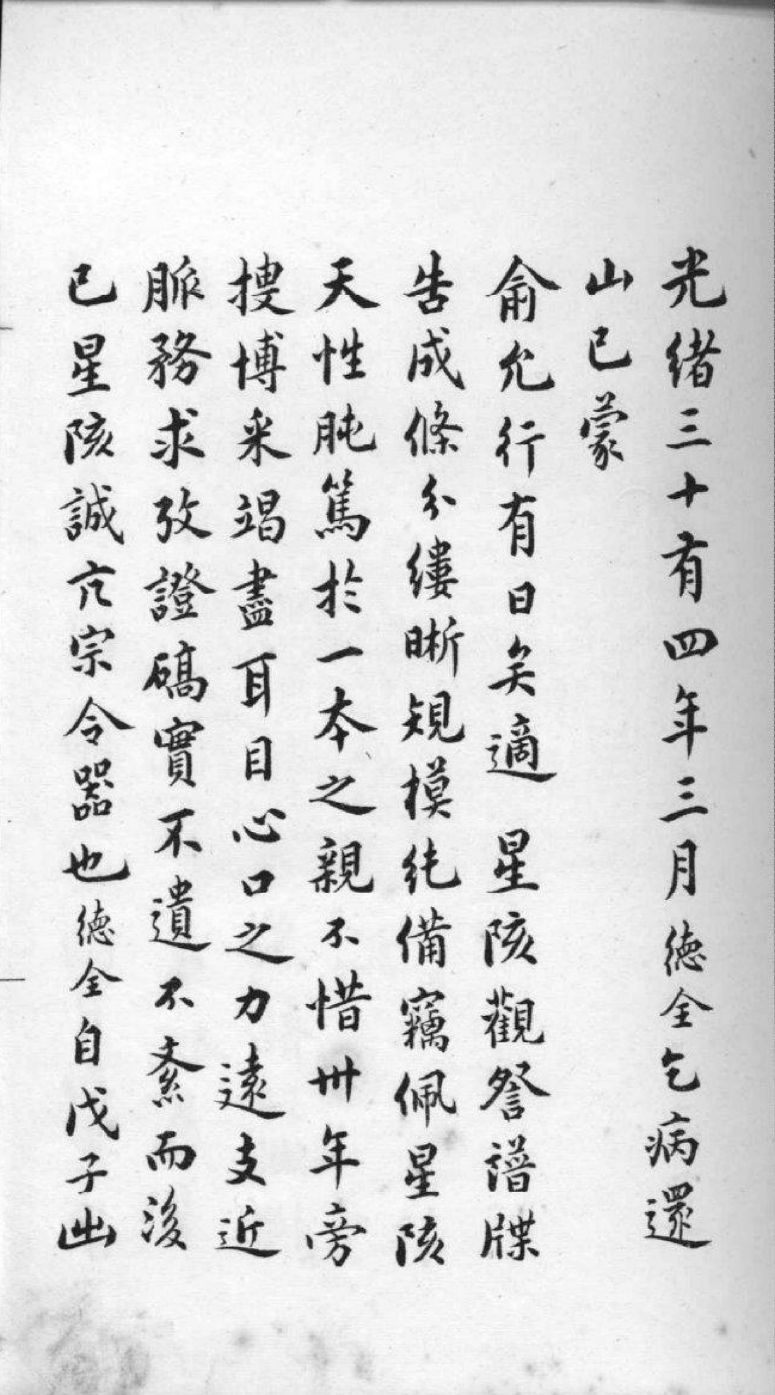 光緒三十有四年三月德全乞病還
山已蒙
俞允行有日矣適星陔觀詧譜牒
告成條分縷晰規模純備竊佩星陔
天性肫篤於一本之親不惜卅年旁
搜博采竭盡耳目心口之力遠支近
脈務求攷證碻實不遺不紊而後
已星陔誠亢宗令器也德全自戊子出